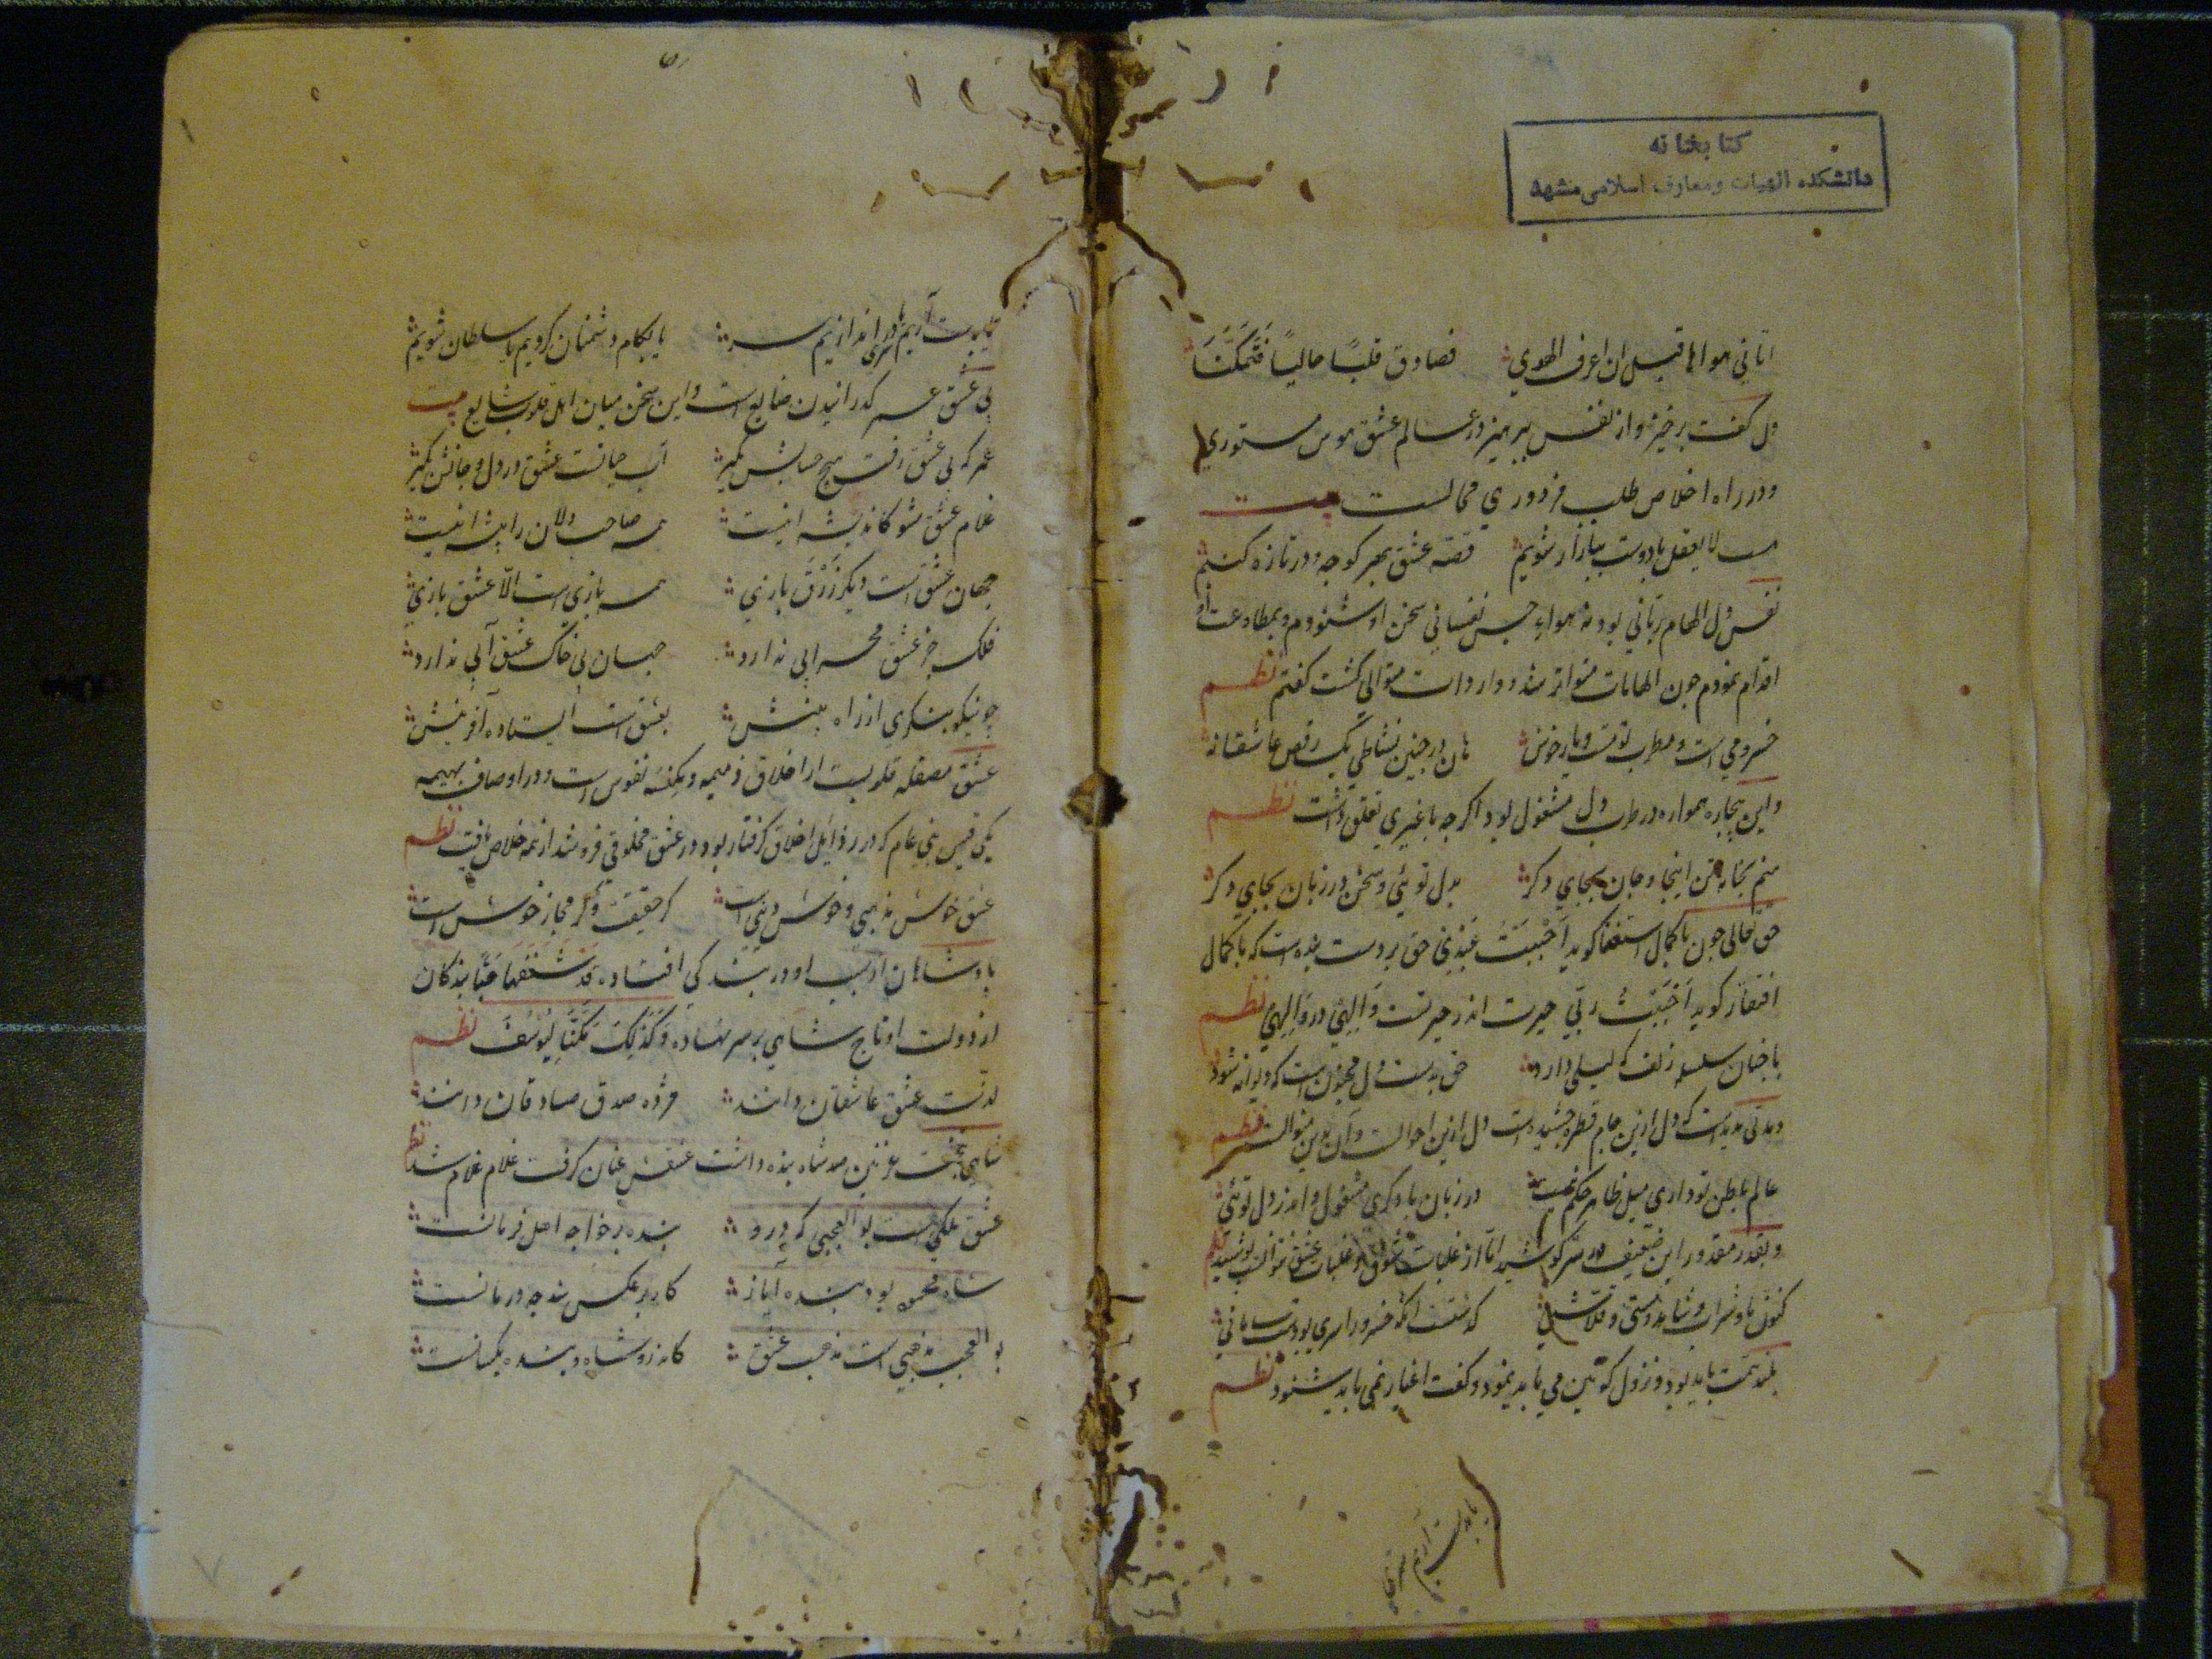 کتابخانه
دانشکده الهیات و معارف اسلامی مشهد
اتانی هواها قبل ان اعرف الهوی فصادف قلبًا خالیًا فَتَمَکَّنَا
دل گفت برخیز و از نفس بپرهیز در عالم عشق هوس مستوری
و در راه اخلاص طلب مزدوری محالست بیت
مست لا یعقل با دوست ببازار شویم قصّه عشق بهر کوچه و در تازه کنیم
نفس دل الهام ربّانی بود نه هواء حس نفسانی سخن او شنودم و بمطاوعت او
اقدام نمودم چون الهامات متواتر شد و واردات متوالی گشت گفتم نظم
خسرو می است و مطرب و یار خوش هان در چنین نشاطی یک رقص عاشقانه
و این بیچاره همواره در طرب دل مشغول بود اگر چه با غیری تعلق داشت نظم
منم بخانه تن اینجا و جان بجای دگر بدل توئی و سخن در زبان بجای دگر
حق تعالی چون با کمال استغنا گوید اَحْبَبْتُ عَبْدِی حق بر دست بنده است که با کمال
افتقار گوید اَحْبَبْتُ ربّی حیرت اندر حیرتست وَالهِی در وَالهِی نظم
با چنان سلسله زلف که لیلی دارد حق بدست دل مجنون است که دیوانه شود
و مدتی مدید است که دل ازین جام قطره چشیده است دل ازین احوالست و آن برین منوالست نظم
عالم باطن تو داری میل ظاهر حکم در زبان با دگری مشغول و اندر دل توئی
و بقدر مقدور این ضعیف در ستر کوشید امّا از غلبات شوق و غلبات عشق نتوانست پوشید نظم
کنون ما و شراب و شاهد و مستی و قلّاشی که آنکه خسرو را سری بودست سامانی
بلند همّت باید بود و نزول کونین می باید نمود و گفت اغیار نمی باید شنود نظم
یا بدست آریم سری
یا بدست آریم سری یا در اندازیم سر یا بکام دشمنان گردیم یا سلطان شویم
بی عشق عمر گذرانیدن ضایع است و این سخن میان اهل قلوب شایع بیت
عمر که بی عشق رفت هیچ حسابش مگیر آب حیاتست عشق در دل و جانش بگیر
غلام عشق شو کاندیشه اینست همه صاحب دلان را پیشه اینست
جهان عشق است دیگر زَرْق بازی همه بازیست الّا عشق بازی
فلک جز عشق محرابی ندارد جهان بی خاک عشق آبی ندارد
چو نیکو بنگری از راه بینش بعشق است ایستاده آفرینش
عشق مصقله قلوبست از اخلاق ذمیمه و مکنسه نفوس است و در اوصاف بهیمه
یکی قیس بنی عامر که در رذایل اخلاق گرفتار بود در عشق مخلوقی فرو شد از همه خلاص یافت نظم
عشق خوش مذهبی و خوش دینی است گر حقیقت وگر مجاز خوش است
پادشاهان از سبب او در بندگی افتاده قَدْ شَغَفَهَا حُبًّا بندگان
از دولت او تاج شاهی بر سر نهاده وَکَذَلِکَ مَکَّنَّا لِیُوسُفَ نظم
لذّت عشق عاشقان دانند مژده صدق صادقان دانند
شاهی بتخت غزنین صد شاه بنده داشت عشقش عنان گرفت غلام غلام شد نظم
عشق ملکی است بو العجبی که درو بنده بر خواجه اصل فرمانست
شاه محمود بود بنده ایاز کار بر عکس شد چه درمانست
بو العجب مذهبی است مذهب عشق کاندرو شاه و بنده یکسانست
۷